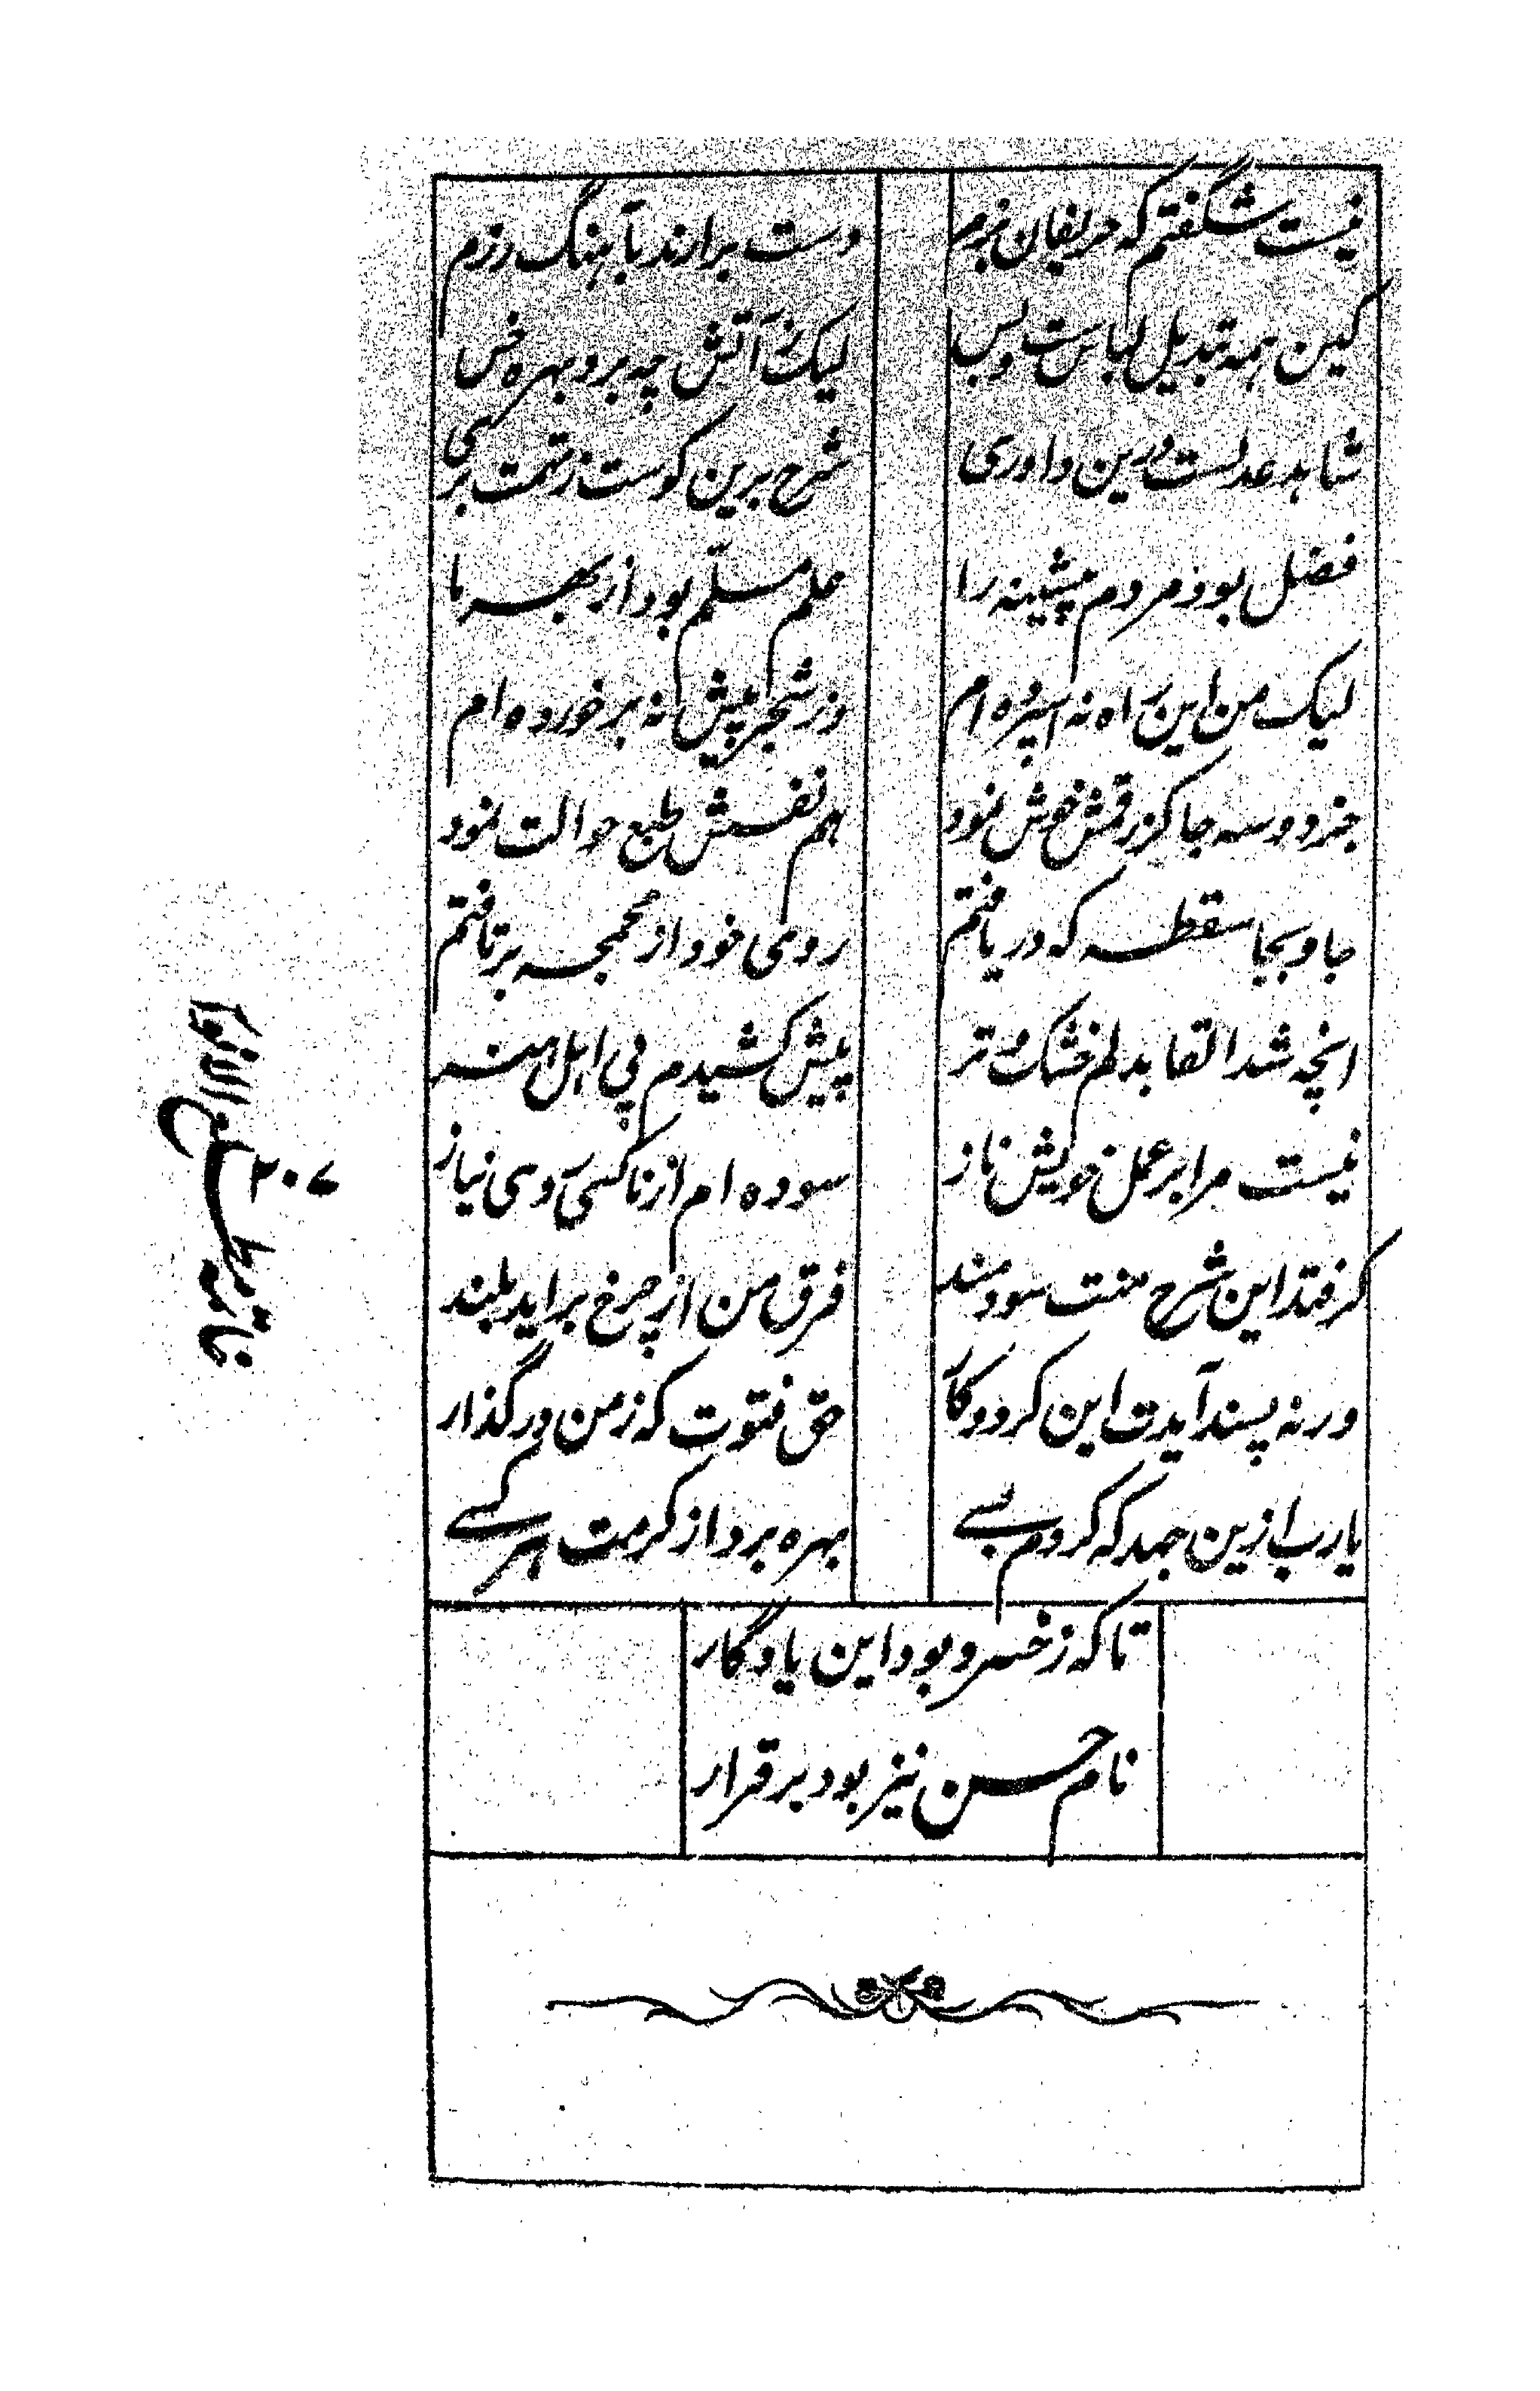 نیست شگفتم که حریفان بزم
دست برارند بآهنگ رزم
کین همه تبدیل لباس ست و بس
لیک ز آتش چه برد بهره خس
شاهد عدلست درین داوری
شرح برین کوست ز تهمت بری
فضل بود مردم پیشینه را
علم مسلم بود از بهر ما
لیک من این راه نه اسپرده ام
وز شجر پیش نه بر خورده ام
جز دو سه جا کز رقمش خوش نمود
هم نفسش طبع حوالت نمود
جا و بجا سقطه که دریافتم
روی خود از محمجه برتافتم
انچه شد القا بدلم خشک و تر
پیش کشیدم پی اهل هنر
نیست مرا بر عمل خویش ناز
سوده ام از ناکسی روی نیاز
گرفتد این شرح منت سودمند
فرق من از چرخ براید بلند
ور نه پسند آیدت این کردوکار
حق فتوت که ز من درگذار
یارب ازین جهد که کردم بسی
بهره برد از کرمت هر کسی
تا که ز خسرو بود این یادگار
نام حسن نیز بود برقرار
۲۰۷